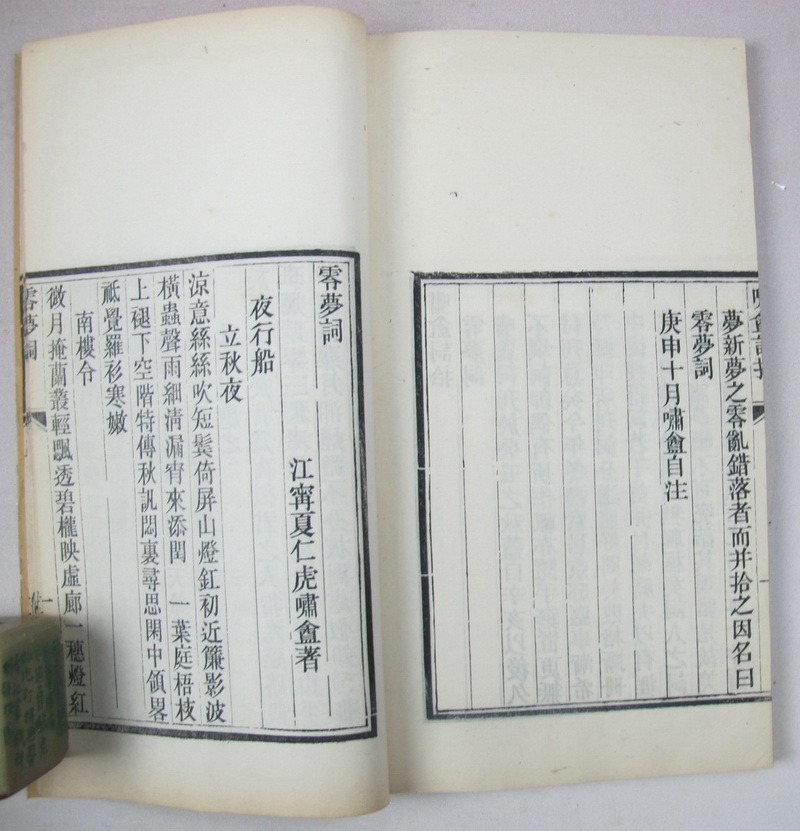 夢新夢之零亂錯落者而并拾之因名曰
零夢詞
庚申十月嘯盦自注
零夢詞
江寧夏仁虎嘯盦著
夜行船
立秋夜
涼意絲絲吹短鬢倚屏山燈釭初近簾影波
橫蟲聲雨細清漏宵來添閏 一葉庭梧枝
上褪下空階特傳秋訊悶裏尋思閑中領畧
祗覺羅衫寒嫩
南樓令
微月掩蘭叢輕飄透碧櫳映虛廊一穗燈紅
零夢詞